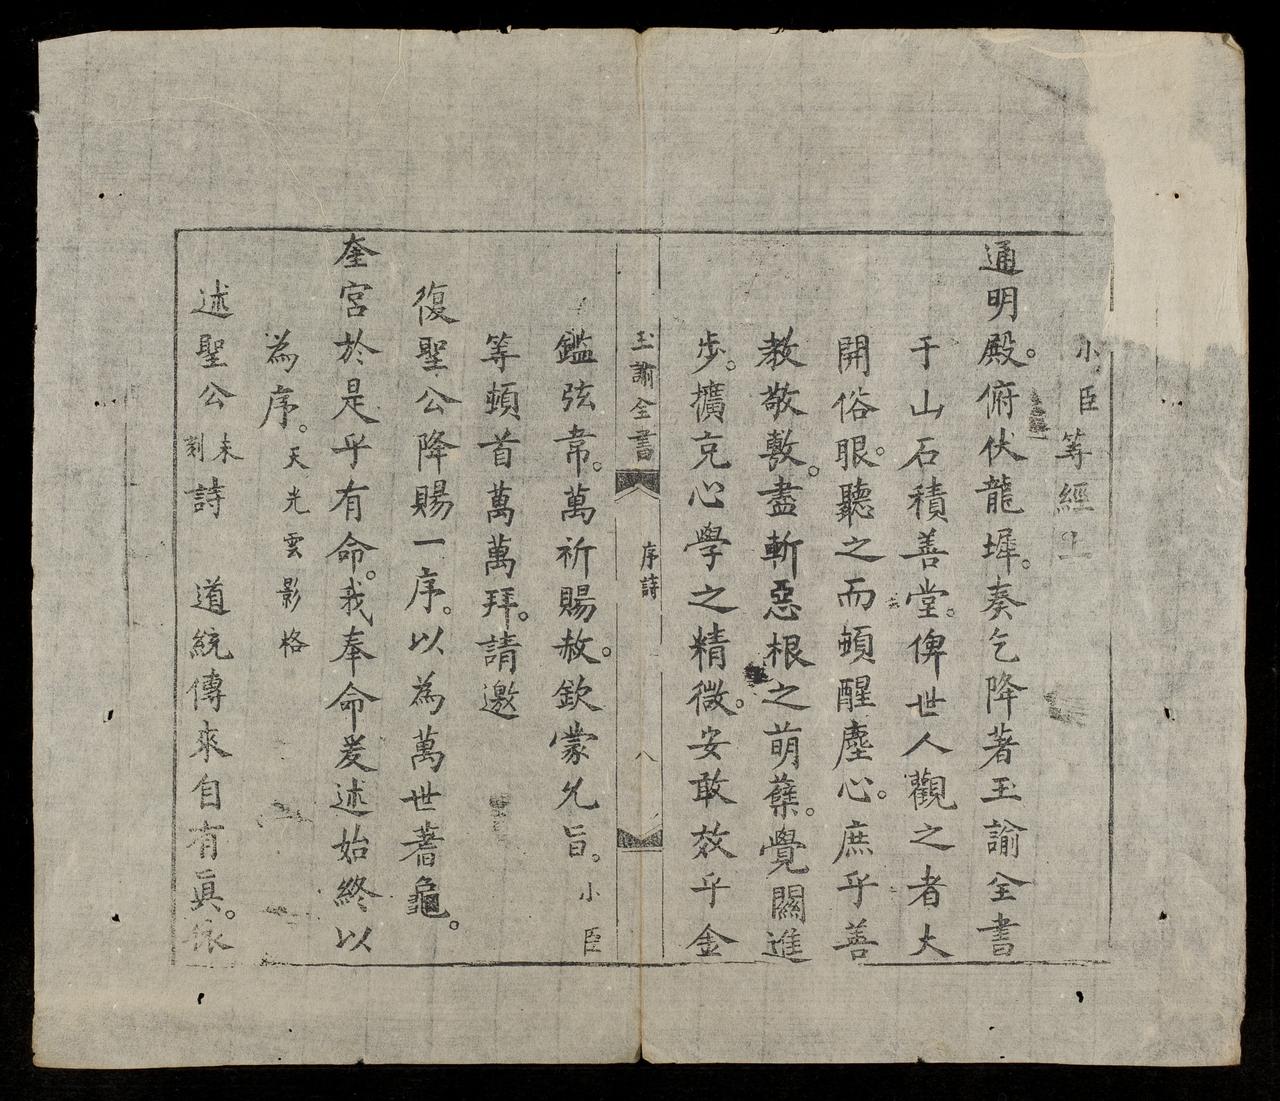 小臣等經上
通明殿。俯伏龍墀。奏乞降著玉諭全書
于山石積善堂。俾世人觀之者大
開俗眼。聽之而頓醒塵心。庶乎善
教敬敷。盡斬惡根之萌蘖。覺關進
步。擴充心學之精微。安敢效乎金
玉諭全書 序詩 八
鑑弦韋。萬祈賜赦。欽蒙允旨。小臣
等頓首萬萬拜。請邀
復聖公降賜一序。以為萬世蓍龜。
奎宮於是乎有命。我奉命爰述始終以
為序。天光雲影格
述聖公未刻詩 道統傳來自有真。派